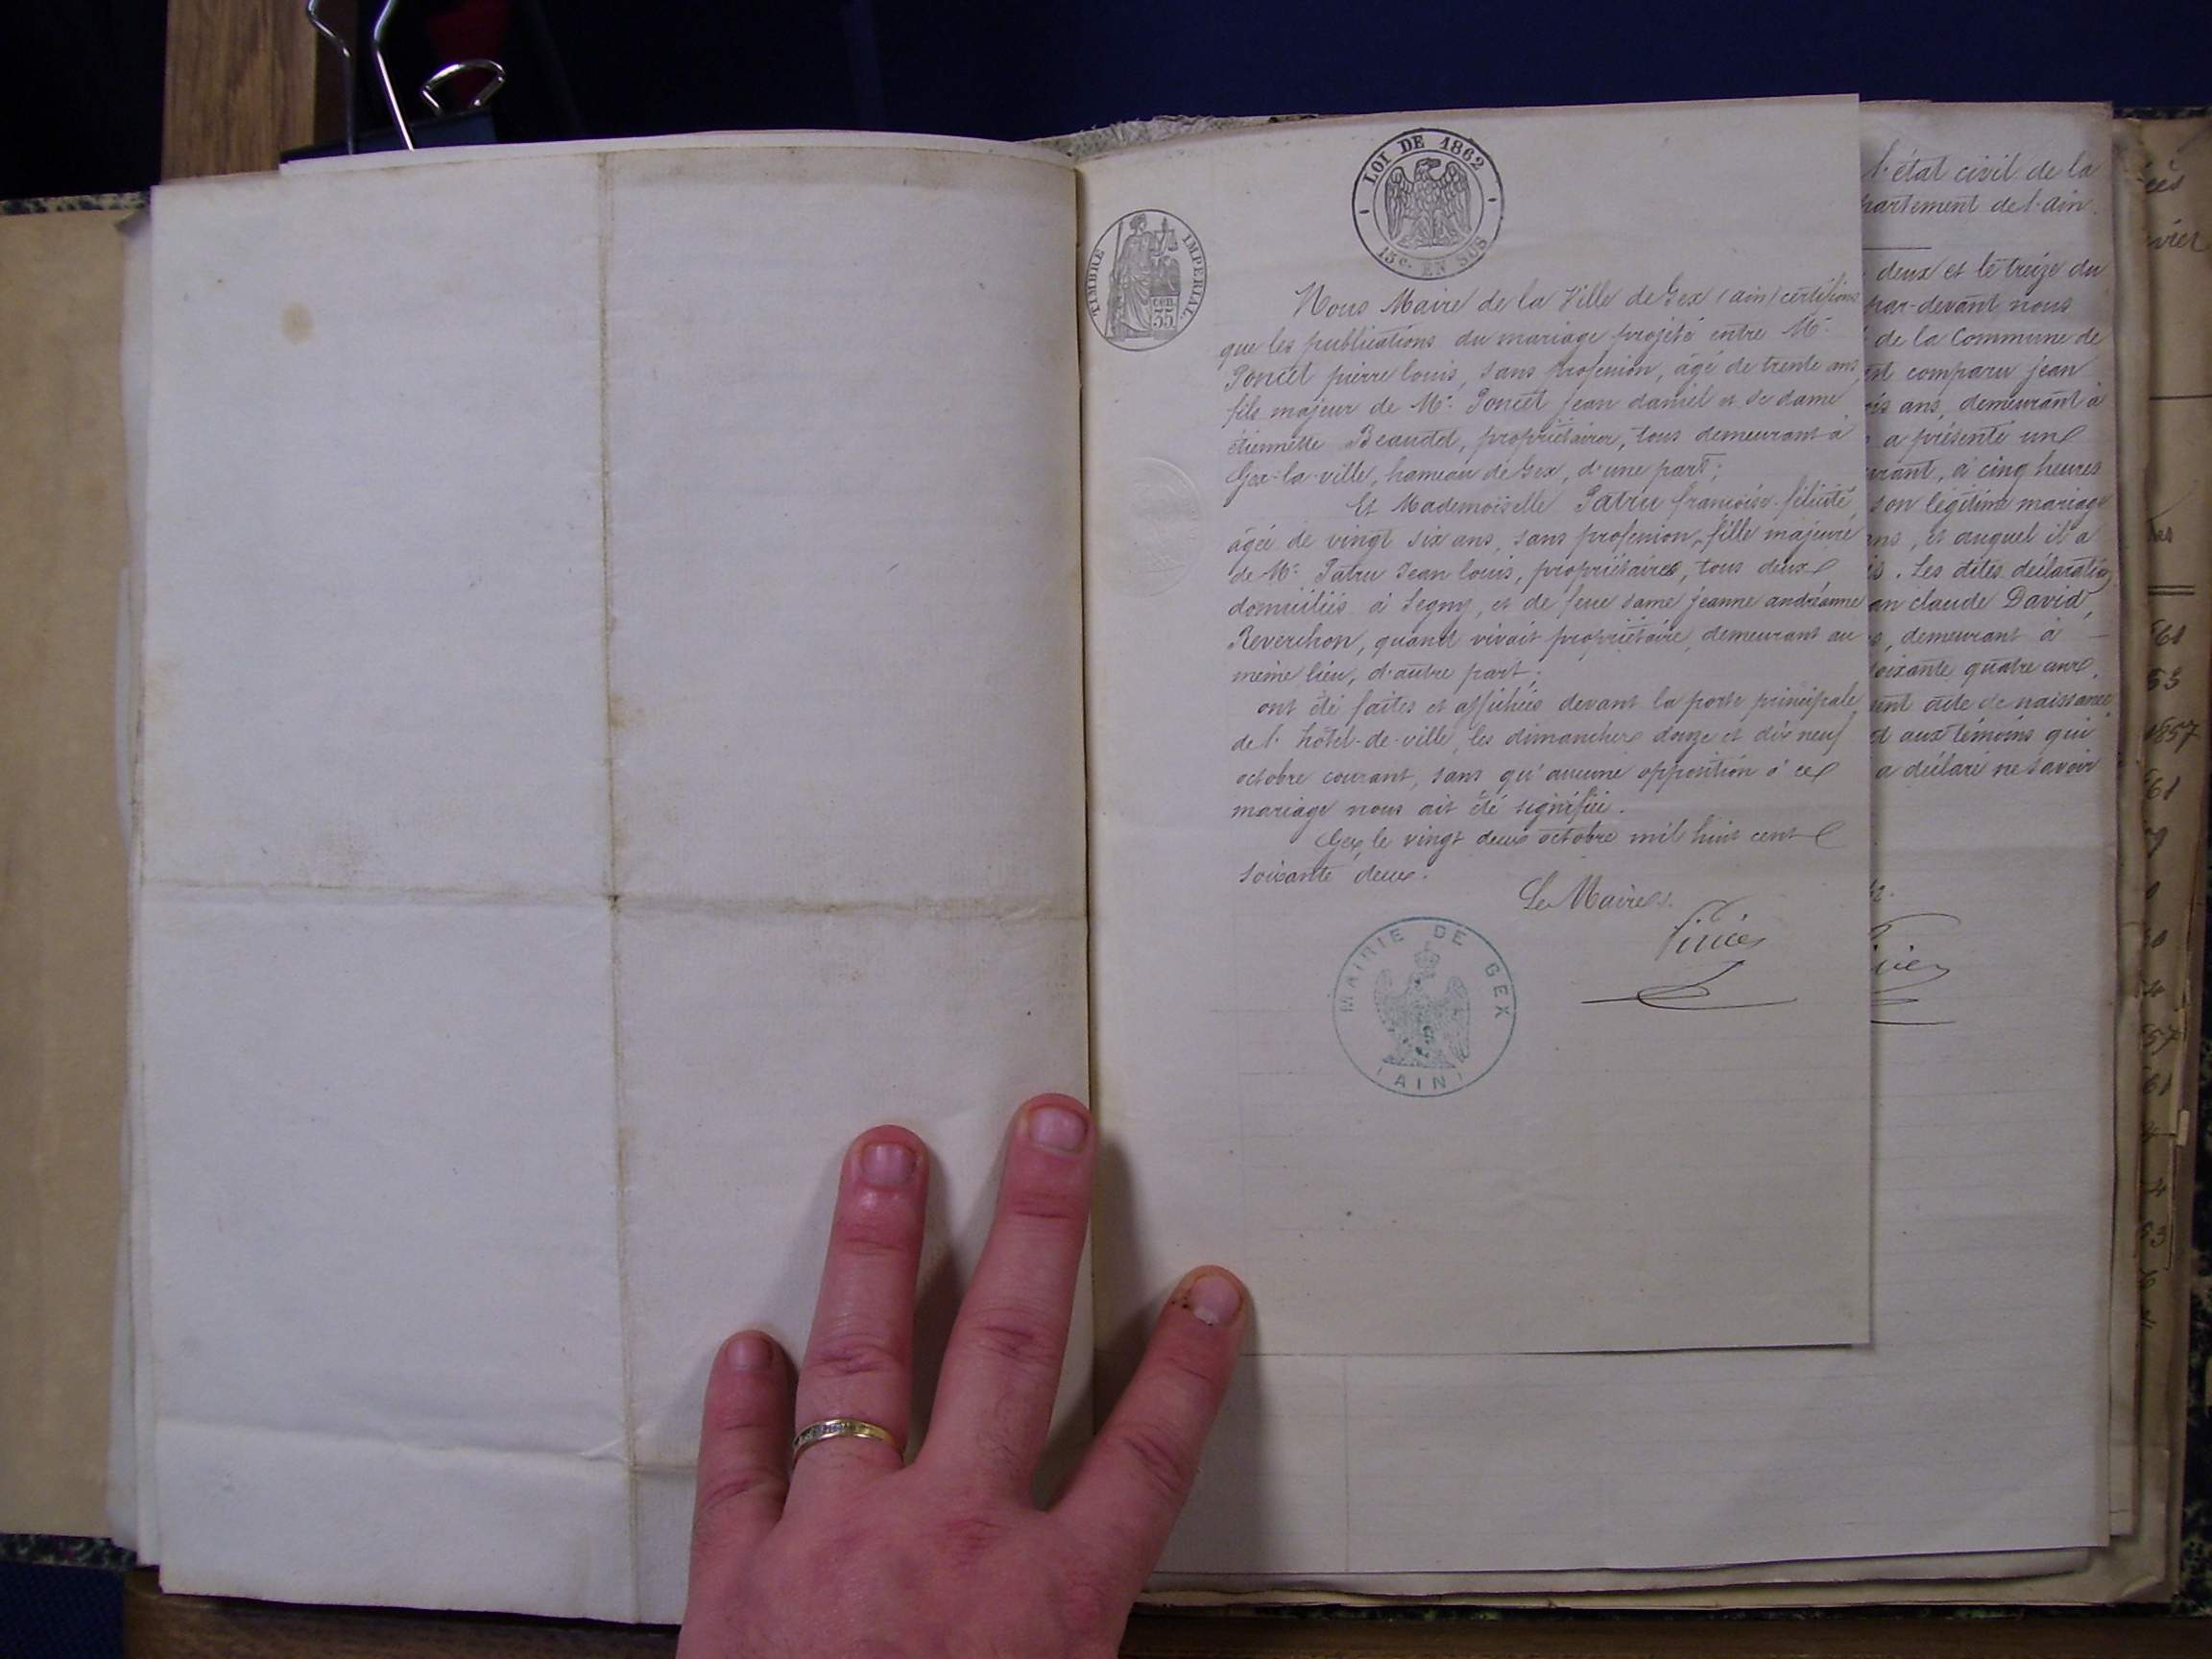 LOI DE 1862
15c. EN SUS
TIMBRE IMPERIAL
cen. 55
Nous Maire de la Ville de Gex (ain) certifions
que les publications du mariage projeté entre Mr.
Poncet pierre louis, sans profession, âgé de trente ans,
fils majeur de Mr. Poncet jean daniel et de dame
étiennette Beaudet, propriétaires, tous demeurant à
Gex-la-ville, hameau de Gex, d'une part;
Et Mademoiselle Patru françoise-félicité,
âgée de vingt six ans, sans profession, fille majeure
de Mr. Patru Jean louis, propriétaires, tous deux
domiciliés à Segny, et de feue dame jeanne andréanne
Reverchon, quand vivait propriétaire, demeurant au
même lieu, d'autre part;
ont été faites et affichées devant la porte principale
de l'hôtel-de-ville, les dimanches douze et dix neuf
octobre courant, sans qu'aucune opposition à ce
mariage nous ait été signifiée.
Gex, le vingt deux octobre mil huit cent
soixante deux.
Le Maire,
MAIRIE DE GEX
(AIN)
l'état civil de la
partement de l'ain.
deux et le treize du
par-devant nous
de la Commune de
est comparu jean
ans, demeurant à
a présenté un
à cinq heures
son légitime mariage
ans, et auquel il a
Les dites déclaration
claude David,
demeurant à
soixante quatre ans,
acte de naissance
aux témoins qui
a déclaré ne savoir
61
53
1857
61
57
61
53